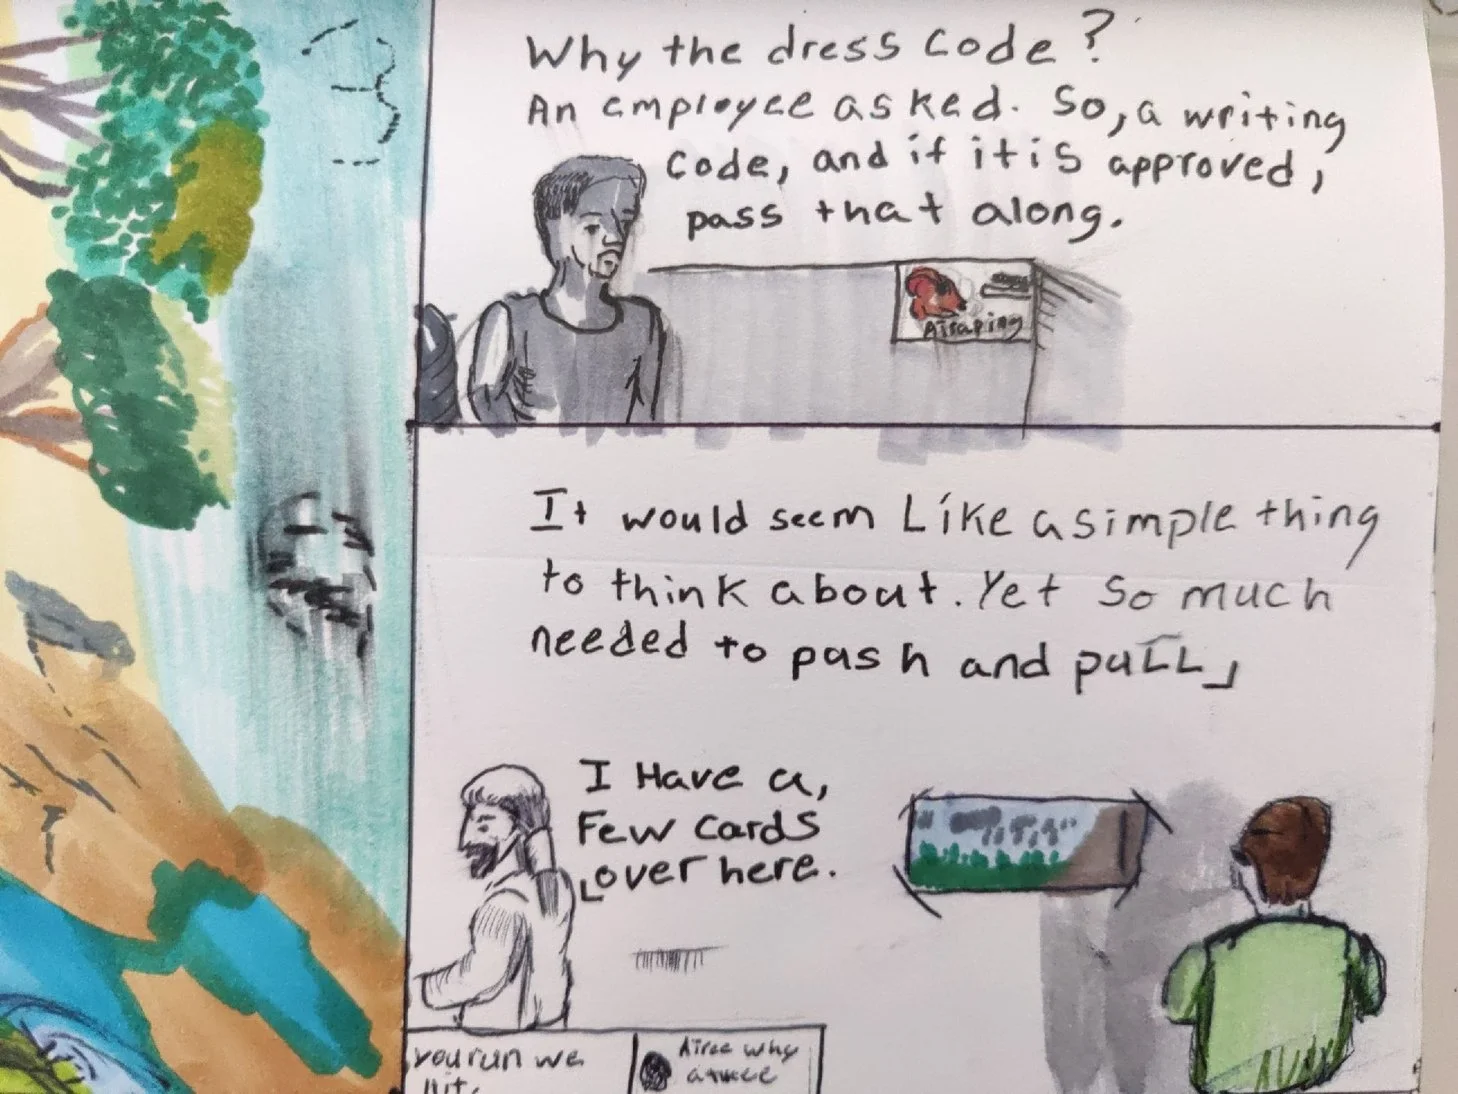 Why the dress code?
An employee asked. So, a writing
code, and if it is approved,
pass that along.
It would seem Like a simple thing
to think about. Yet so much
needed to push and pull
I Have a,
Few cards
over here.
you run we
why